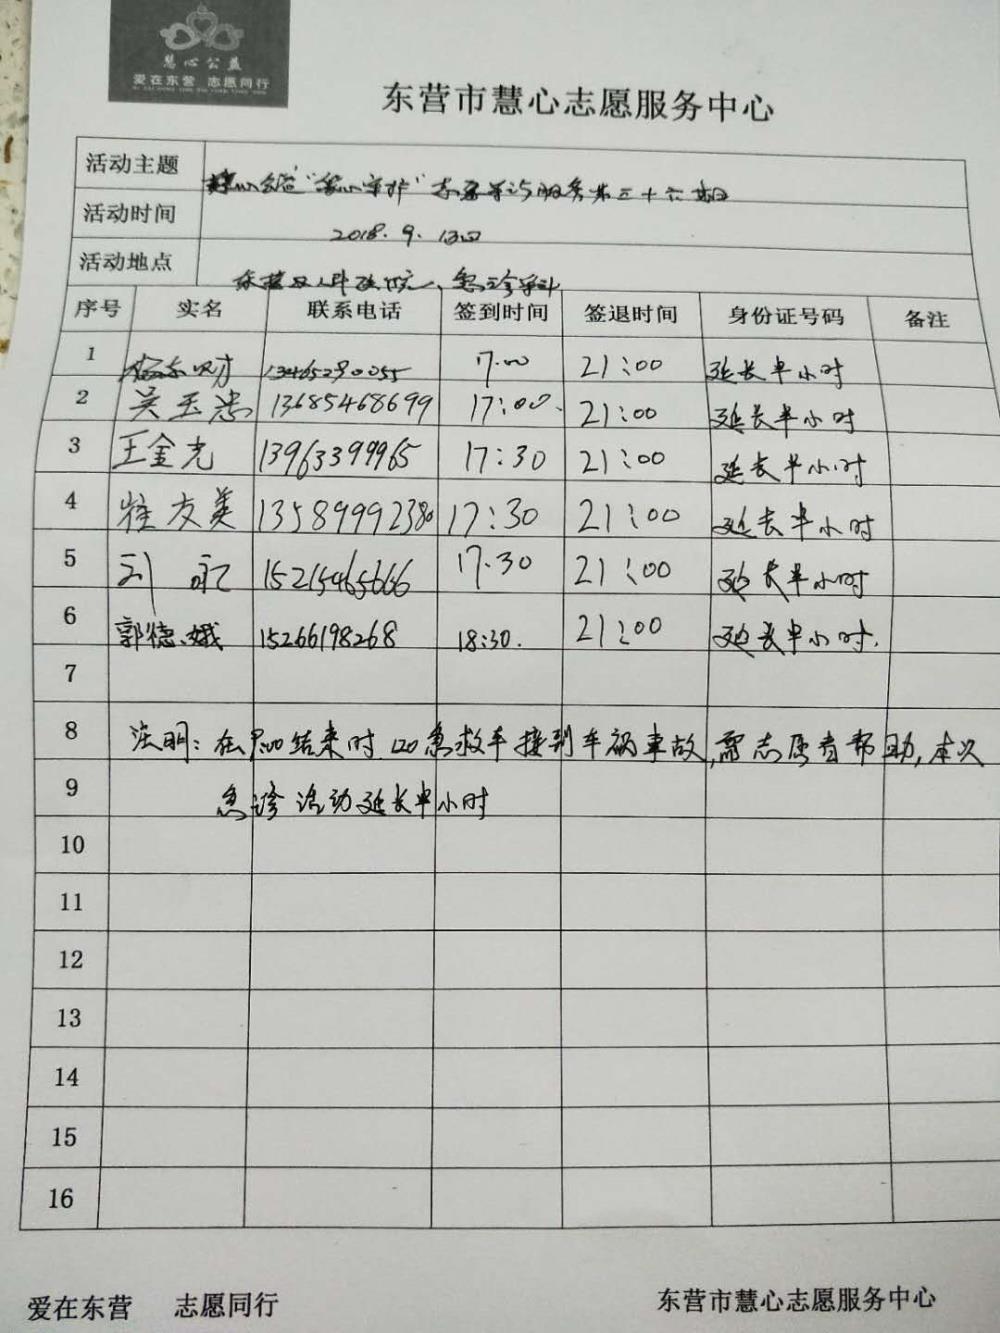 慧心公益
爱在东营 志愿同行
东营市慧心志愿服务中心
活动主题 慧心公益"爱心守护" 志愿者 服务第三十六期
活动时间 2018.9.13日
活动地点 东营区人民医院、急诊科
序号 实名 联系电话 签到时间 签退时间 身份证号码 备注
1 13465290055 17:00 21:00 延长半小时
2 吴玉忠 13685468699 17:00. 21:00 延长半小时
3 王金光 13963399965 17:30 21:00 延长半小时
4 友美 13589992380 17:30 21:00 延长半小时
5 刘 15215465666 17:30 21:00 延长半小时
6 郭德娥 15266198268 18:30. 21:00 延长半小时.
7
8 注明:在 结束时 120急救车接到车祸事故,需志愿者帮助,本次
9 急诊活动延长半小时
10
11
12
13
14
15
16
爱在东营 志愿同行 东营市慧心志愿服务中心